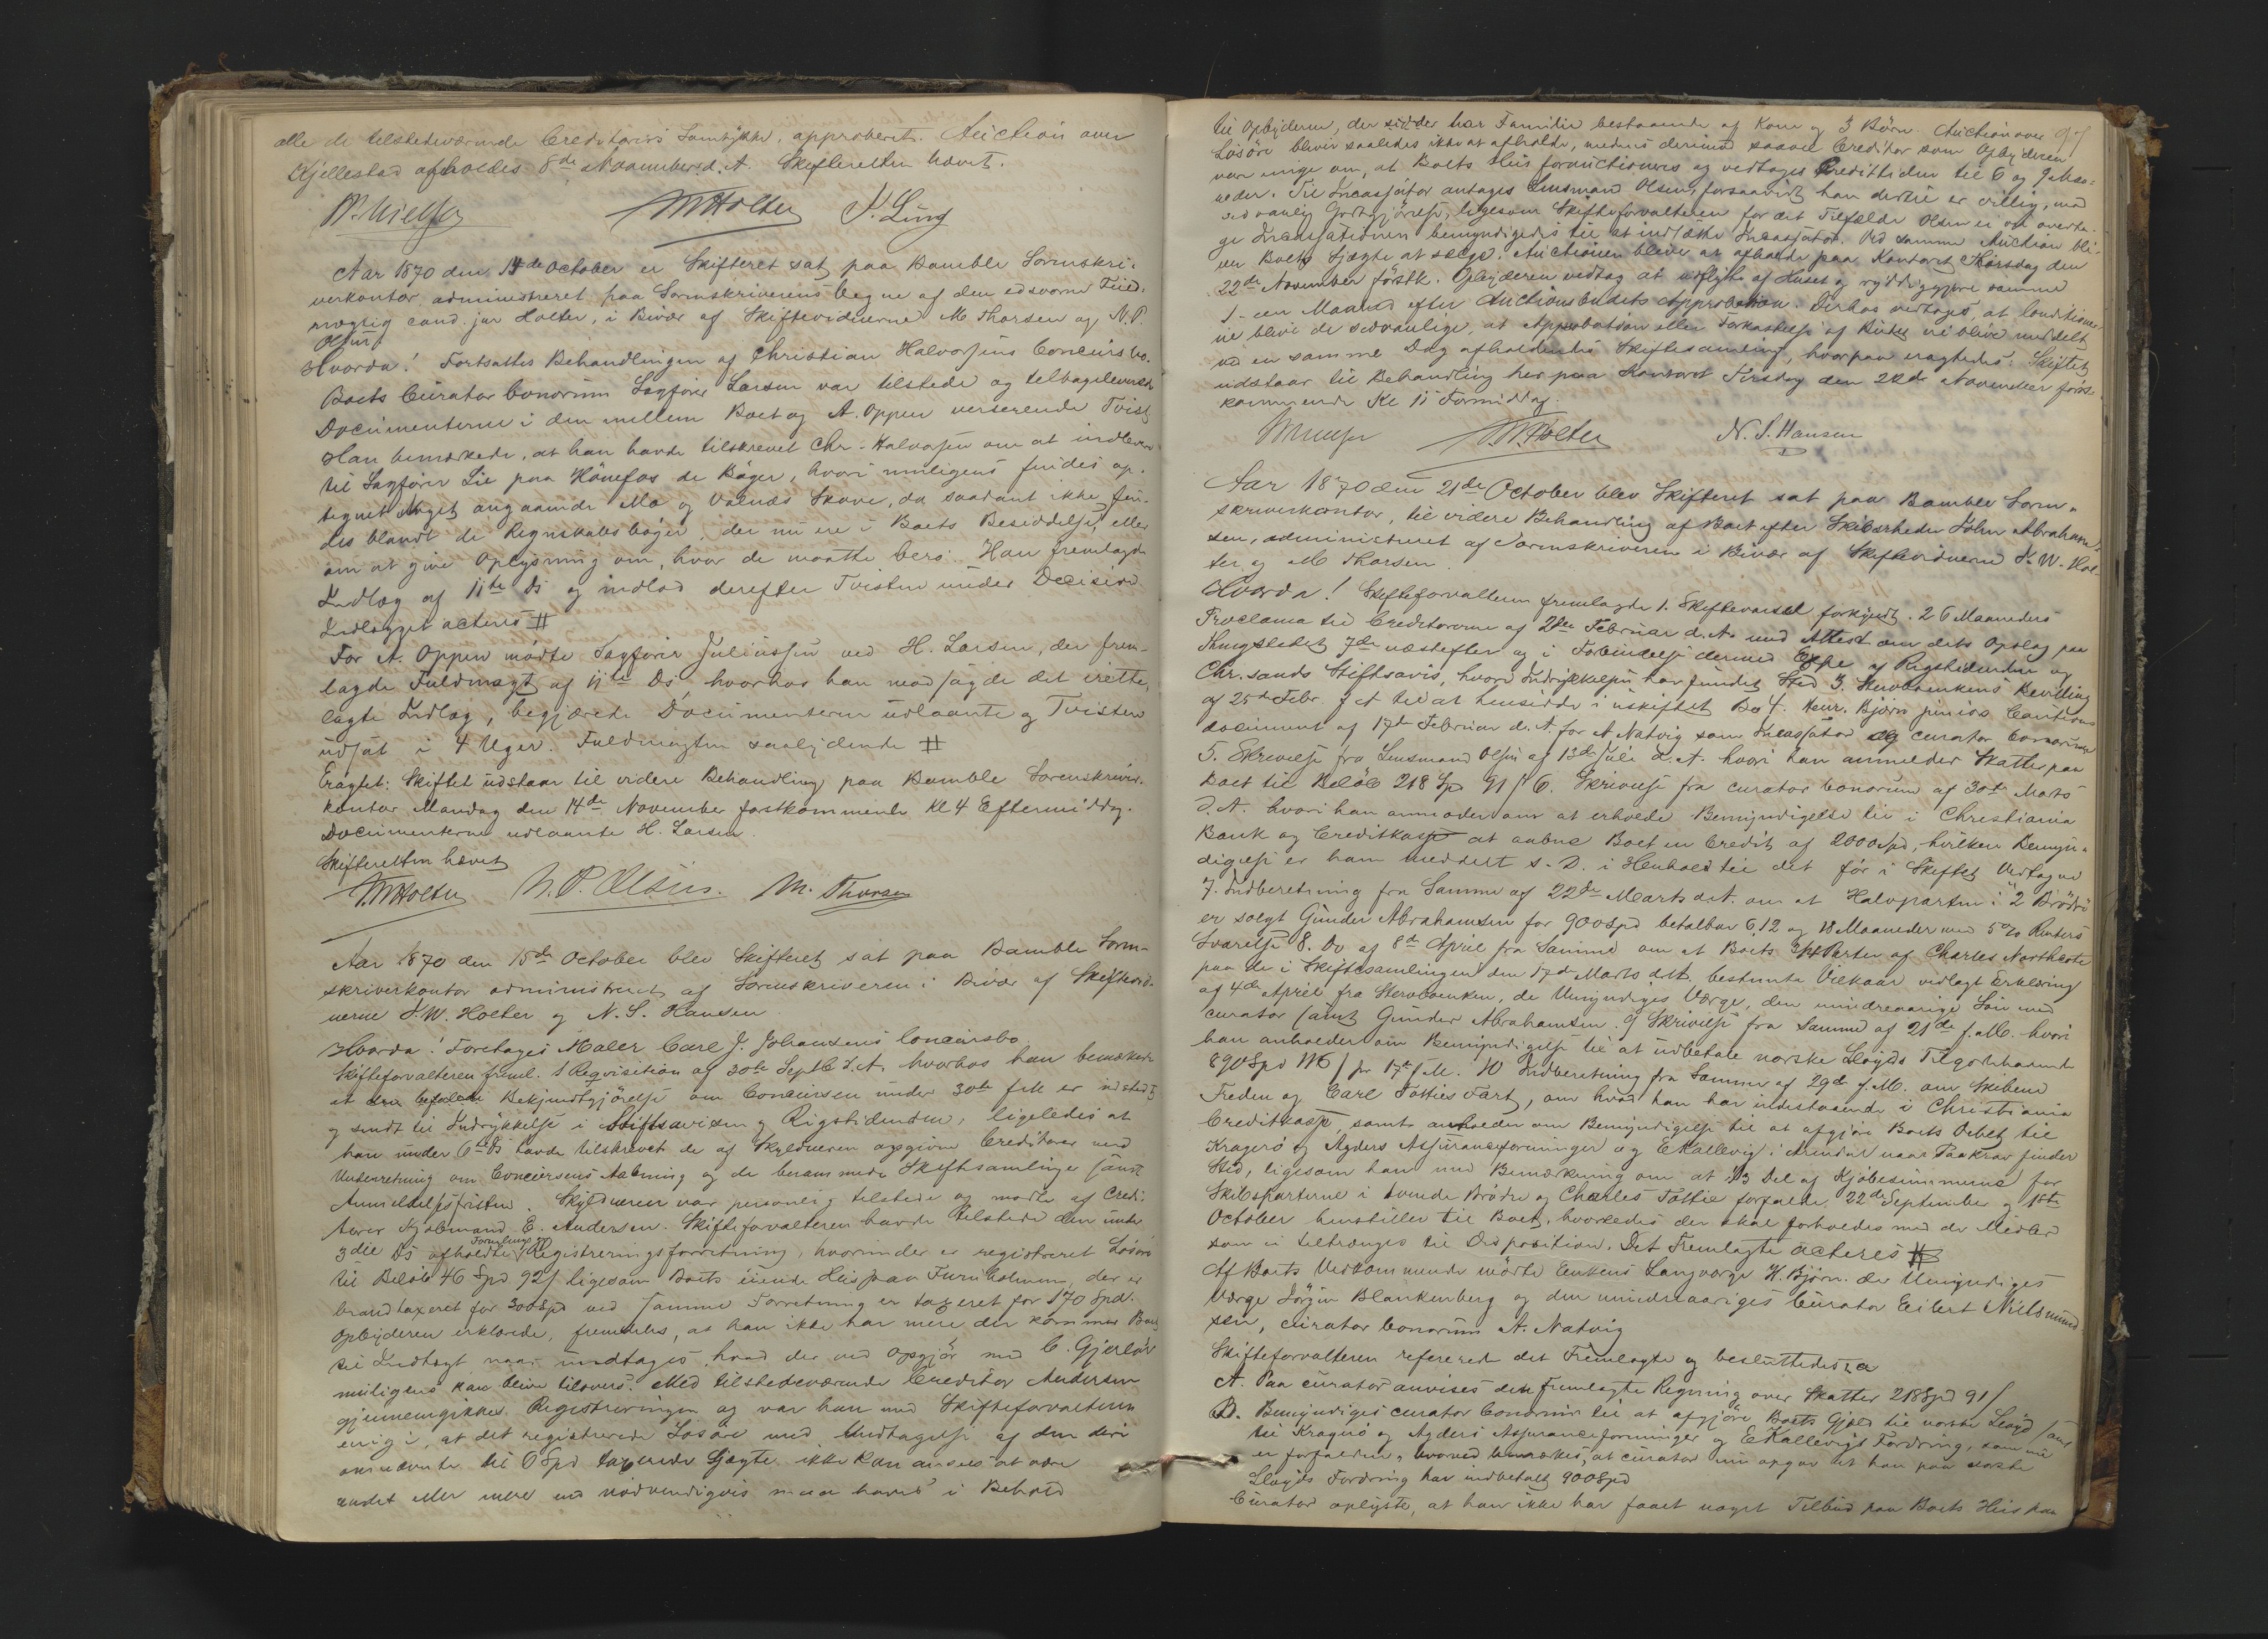 alle de tilstedeværende Creditorers Samtykke, approberet. Auction over
Kjellestad afholdes 8de November d. A. Skifteretten hævet.
JWHolter
Aar 1870 den 14de October er Skifteret sat paa Bamble Sorenskri-
verkontor administreret paa Sorenskriverens Vegne af den edsvorne Fuld-
mægtig cand. jur Holter, i Bivær af Skiftevidnerne M Thorsen og N. P.
Olsen
Hvorda! Fortsattes Behandlingen af Christian Halvorsens Concursbo.
Boets Curator bonorum Sagfører Larsen var tilstede og tilbageleverede
Documenterne i den mellem Boet og A. Oppen verserende Tvist
Han bemærkede, at han havde tilskrevet Chr. Halvorsen om at indlevere
til Sagfører Lie paa Hönefos de Bøger, hvori muligens findes op-
tegnet Noget angaaende Mæ og Valnæs Skove, da saadant ikke fin-
des blandt de Regnskabsbøger, der nu ere i Boets Besiddelse, eller
om at give Oplysning om, hvor de maatte bero. Han fremlagde
Indlæg af 11te Ds og indlod derefter Tvisten under Decision
Indlægget acteres #
For A. Oppen mødte Sagfører Juliussen ved H. Larsen, der frem-
lagde Fuldmagt af 11te Ds, hvorhos han modsagde det irette-
lagte Indlæg, begjærede Documenterne udlaante og Tvisten
udsat i 4 Uger. Fuldmagten saalydende #
Eragtet: Skiftet udstaar til videre Behandling paa Bamble Sorenskriver-
kontor Mandag den 14de November førstkommende Kl 4 Eftermiddag.
Documenterne udlaante H. Larsen.
Skifteretten hævet
JWHolter N. P. Olsen. M. Thorsen
Aar 1870 den 15de October blev Skifteret sat paa Bamble Soren-
skriverkontor administreret af Sorenskriveren i Bivær af Skiftevid-
nerne J. W. Holter og N. S. Hansen
Hvorda! Foretages Maler Carl J. Johansens Concursbo
Skifteforvalteren freml. 1 Reqvisition af 30te Septb d. A. hvorhos han bemærkede
at den befalede Bekjendtgjörelse om Concursen under 30te f. M. er udstedt
og sendt til Indrykkelse i Stiftsavisen og Rigstidenden, ligeledes at
han under 6te Ds havde tilskrevet de af Skyldneren opgivne Creditorer med
Underretning om Concursens Aabning og de berammede Skiftesamlinger samt
Anmeldelsesfristen. Skyldneren var personlig tilstede og mødte af Credi-
torer Kjøbmand E. Andersen. Skifteforvalteren havde tilstede den under
3die Ds afholdte Foreløbige Registreringsforretning, hvorunder er registreret Løsøre
til Beløb 46 Spd 92 ß ligesom Boets eiende Hus paa Furuholmen, der er
brandtaxeret for 300 Spd ved samme Forretning er taxeret for 170 Spd.
Opbyderen erklærede, fremdeles, at han ikke har mere der kommer Boet
til Indtægt naar undtages, hvad der ved Opgjør med C. Gjerløv
muligens kan blive tilovers. Med tilstedeværende Creditor Andersen
gjennemgikkes Registreringen og var han med Skifteforvalteren
enig i, at det registrerede Løsøre med Undtagelse af den deri
omnævnte til 6 Spd taxerede Sjægte ikke kan ansees at være
andet eller mere end nødvendigvis maa haves i Behold
97
til Opbyderen, der sidder har Familie bestaaende af Kone og 3 Børn. Auction over
Løsøre bliver saaledes ikke at afholde, medens derimod saavel Creditor som Opbyderen
vare enige om, at Boets Hus forauctioneres og vedtages Credittiden til 6 og 9 Maa-
neder. Til Incassator antages Lensmand Olsen, forsaavidt han dertil er villig, mod
sedvanlig Godtgjörelse, ligesom Skifteforvalteren for det Tilfælde Olsen ei vil overta-
ge Incassationen bemyndigedes til at indsætte Incassator. Ved samme Auction bli-
ver Boets Sjægte at sælge. Auctionen bliver at afholde paa Kontoret Tirsdag den
22de November førstk. Opbyderen vedtog at udflytte af Huset og ryddiggjøre samme
1 - een Maaned efter Auctionsbudets Approbation. Derhos vedtoges, at Conditioner-
ne blive de sedvanlige, at Approbation eller Forkastelse af Budet vil blive meddelt
ved en samme Dag afholdendes Skiftesamling, hvorpaa eragtedes: Skiftet
udstaar til Behandling her paa Kontoret Tirsdag den 22de November først-
kommende Kl 11 Formiddag.
JWHolter N. S. Hansen
Aar 1870 den 21de October blev Skifteret sat paa Bamble Soren-
skriverkontor, til videre Behandling af Boet efter Skibsrheder John Abraham-
sen, administreret af Sorenskriveren i Bivær af Skiftevidnerne J. W. Hol-
ter og M Thorsen.
Hvorda! Skifteforvalteren fremlagde 1. Skiftevarsel forkyndt. 2 6 Maaneders
Proclama til Creditorerne af 2den Februar d. A. med Attest om dets Opslag paa
Thingstedet 7de næstefter og i Forbindelse dermed Expl af Rigstidenden og
Chr.sands Stiftsavis, hvori Indrykkelsen har fundet Sted 3. Stervboenkens Bevilling
af 25de Febr. f A til at hensidde i uskiftet Bo 4. Henr. Bjørn juniors Cautions
document af 17de Februar d. A. for A Natvig som Incassator og curator bonorum
5. Skrivelse fra Lensmand Olsen af 13de Juli d. A. hvori han anmelder Skatter paa
Boet til Beløb 218 Sp 91 ß 6. Skrivelse fra curator bonorum af 30te Marts
d. A. hvori han anmoder om at erholde Bemyndigelse til i Christiania
Bank og Creditkasse at aabne Boet en Credit af 2000 Spd, hvilken Bemyn-
digelse er ham meddelt s. D. i Henhold til det før i Skiftet Vedtagne
7. Indberetning fra Samme af 22de Marts d. A. om at Halvparten i "2 Brødre"
er solgt Gunder Abrahamsen for 900 Spd betalbar 6, 12 og 18 Maaneder med 5 % Renters
Svarelse 8. Do af 8de April fra Samme om at Boets 1/4 Parter af Charles Northcote
paa de i Skiftesamlingen den 17de Marts d. A. bestemte Vilkaar vedlagt Erklæring
af 4de April fra Stervboenken, de Umyndiges Værge, den mindreaarige Søn med
curator samt Gunder Abrahamsen. 9 Skrivelse fra Samme af 21de f. M. hvori
han anholder om Bemyndigelse til at udbetale norske Lloyds Tilgodehavende
890 Spd pr 17de f. M. 10 Indberetning fra Samme af 29de f. M. om Skibene
Freden og Carl Totties Fart, om hvad han har indestaaende i Christiania
Creditkasse, samt anholder om Bemyndigelse til at afgjøre Boets Debet til
Kragerø og Agders Assuranceforeninger og E Kallevig i Arendal naar Paakrav finder
Sted, ligesom han med Bemærkning om at 1/3 Del af Kjøbesummerne for
Skibsparterne i tvende Brødre og Charles Tottie forfaldt 22de September og 1ste
October henstiller til Boet, hvorledes der skal forholdes med de Midler
som ei tiltrænges til Disposition. Det Fremlagte acteres #
Af Boets Vedkommende mødte Enkens Laugværge H. Bjørn. de Umyndiges
Værge Jørgen Blankenberg og den mindreaariges Curator Eilert Nielsmund-
sen, curator bonorum A. Natvig
Skifteforvalteren refererede det Fremlagte og besluttedes:
A. Paa curator anvises den fremlagte Regning over Skatter 218 Spd 91 ß
B. Bemyndiges curator bonorum til at afgjøre Boets Gjæld til norske Lloyd samt
til Kragerø og Agders Assuranceforeninger og E Kallevigs Fordring, som nu
er forfalden, hvorved bemærkes, at curator nu opgav at han paa norske
Lloyds Fordring har indbetalt 900 Spd
Curator oplyste, at han ikke har faaet noget Tilbud paa Boets Hus paa